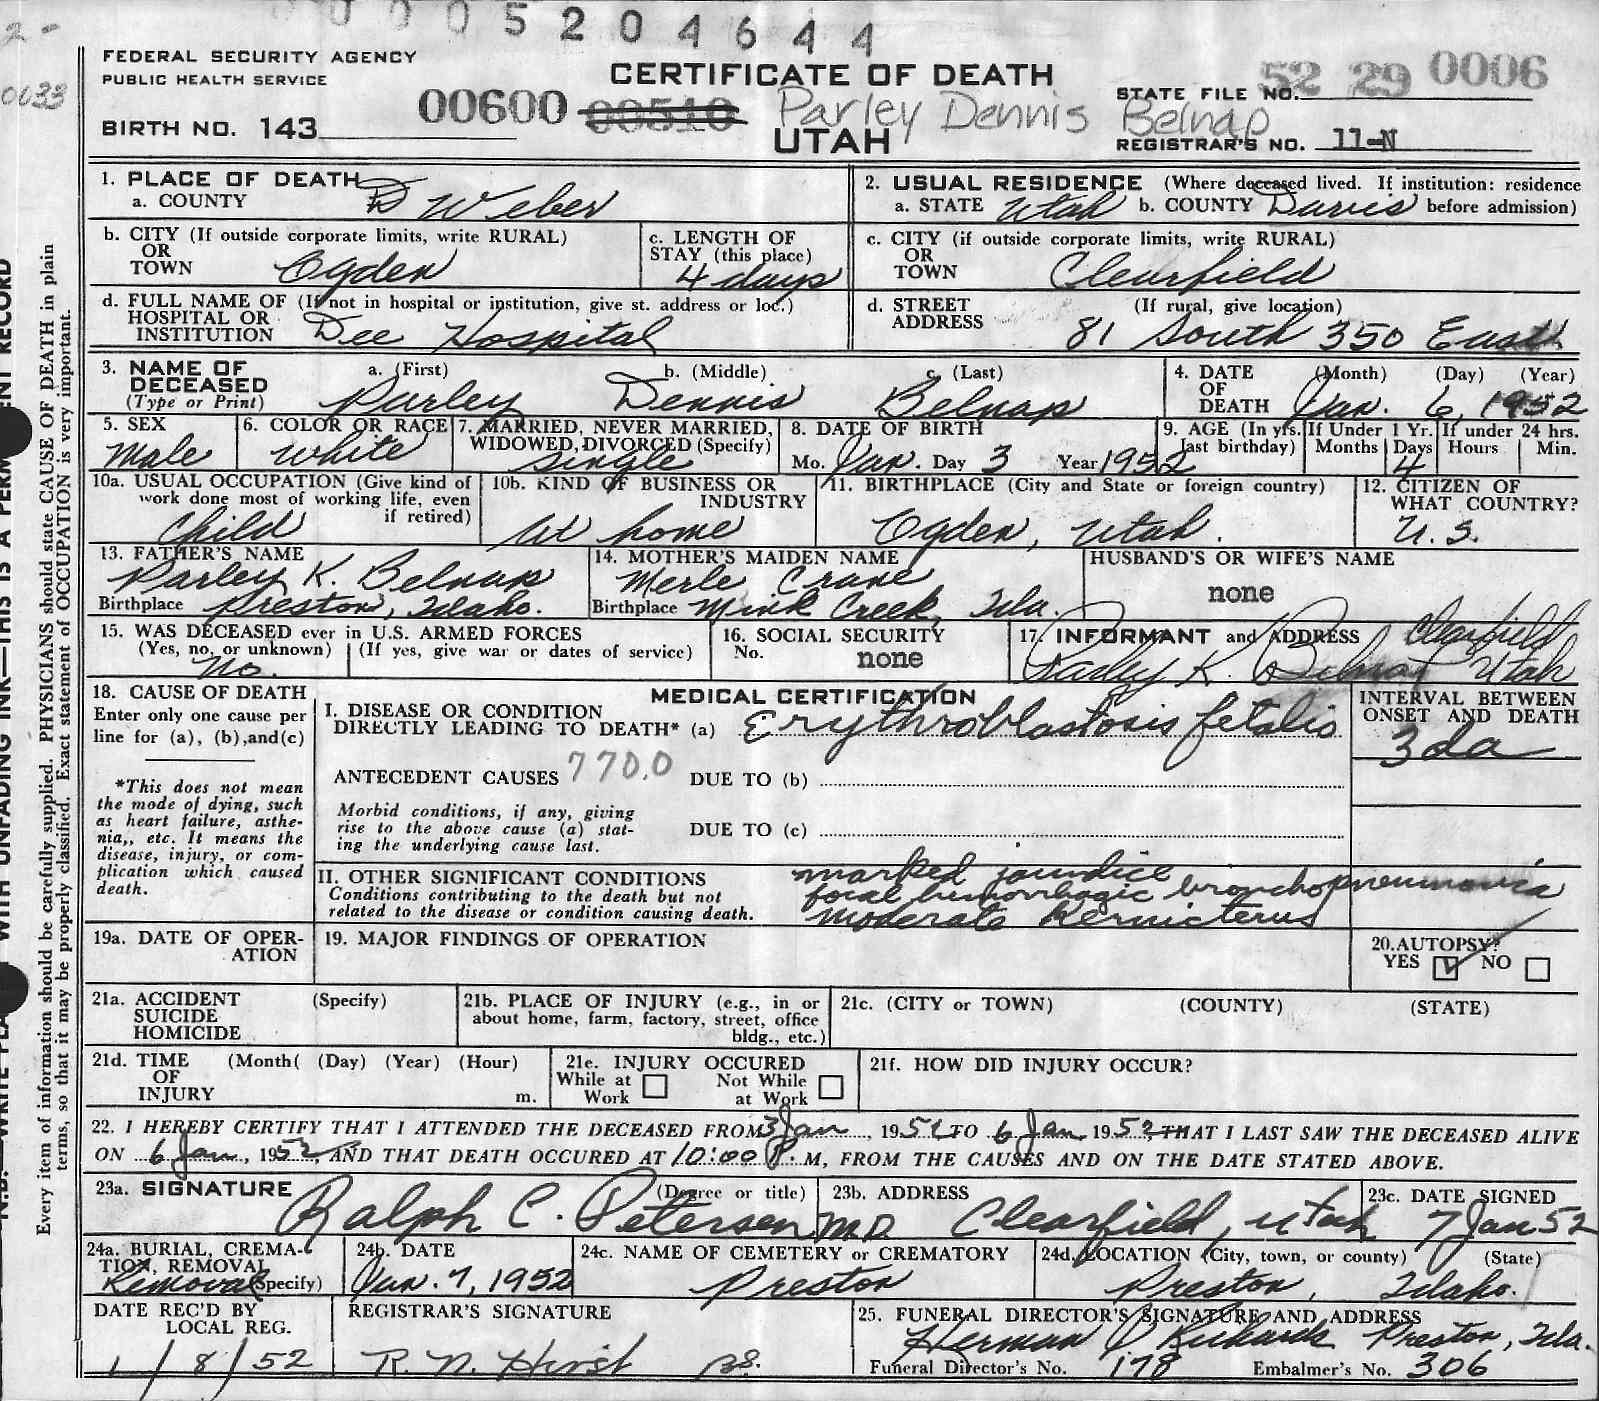 0005204644
2-
0033
FEDERAL SECURITY AGENCY
PUBLIC HEALTH SERVICE
CERTIFICATE OF DEATH
STATE FILE NO. 52 29 0006
00600 00510 Parley Dennis Belnap
BIRTH NO. 143
UTAH
REGISTRAR'S NO. 11-N
1. PLACE OF DEATH
a. COUNTY Weber
2. USUAL RESIDENCE (Where deceased lived. If institution: residence
a. STATE Utah b. COUNTY Davis before admission)
b. CITY (If outside corporate limits, write RURAL)
OR
TOWN Ogden
c. LENGTH OF
STAY (this place)
4 days
c. CITY (if outside corporate limits, write RURAL)
OR
TOWN Clearfield
d. FULL NAME OF (If not in hospital or institution, give st. address or loc.)
HOSPITAL OR
INSTITUTION Dee Hospital
d. STREET (If rural, give location)
ADDRESS 81 South 350 East
3. NAME OF
DECEASED
(Type or Print)
a. (First) b. (Middle) c. (Last)
Parley Dennis Belnap
4. DATE (Month) (Day) (Year)
OF
DEATH Jan. 6, 1952
5. SEX
Male
6. COLOR OR RACE
White
7. MARRIED, NEVER MARRIED,
WIDOWED, DIVORCED (Specify)
Single
8. DATE OF BIRTH
Mo. Jan. Day 3 Year 1952
9. AGE (In yrs.
last birthday)
If Under 1 Yr.
Months Days
4
If under 24 hrs.
Hours Min.
10a. USUAL OCCUPATION (Give kind of
work done most of working life, even
if retired)
Child
10b. KIND OF BUSINESS OR
INDUSTRY
At home
11. BIRTHPLACE (City and State or foreign country)
Ogden, Utah.
12. CITIZEN OF
WHAT COUNTRY?
U.S.
13. FATHER'S NAME
Parley K. Belnap
Birthplace Preston, Idaho.
14. MOTHER'S MAIDEN NAME
Merle Crane
Birthplace Mink Creek, Ida.
HUSBAND'S OR WIFE'S NAME
none
15. WAS DECEASED ever in U.S. ARMED FORCES
(Yes, no, or unknown) (If yes, give war or dates of service)
No.
16. SOCIAL SECURITY
No. none
17. INFORMANT and ADDRESS Clearfield
Parley K. Belnap Utah
18. CAUSE OF DEATH
Enter only one cause per
line for (a), (b), and (c)
*This does not mean
the mode of dying, such
as heart failure, asthe-
nia,, etc. It means the
disease, injury, or com-
plication which caused
death.
MEDICAL CERTIFICATION
I. DISEASE OR CONDITION
DIRECTLY LEADING TO DEATH* (a) Erythroblastosis fetalis
ANTECEDENT CAUSES 770.0 DUE TO (b)
Morbid conditions, if any, giving
rise to the above cause (a) stat-
ing the underlying cause last.
DUE TO (c)
INTERVAL BETWEEN
ONSET AND DEATH
3 da
II. OTHER SIGNIFICANT CONDITIONS
Conditions contributing to the death but not
related to the disease or condition causing death.
marked jaundice
focal hemorrhagic bronchopneumonia
moderate Kernicterus
19a. DATE OF OPER-
ATION
19. MAJOR FINDINGS OF OPERATION
20. AUTOPSY?
YES NO
21a. ACCIDENT (Specify)
SUICIDE
HOMICIDE
21b. PLACE OF INJURY (e.g., in or
about home, farm, factory, street, office
bldg., etc.)
21c. (CITY or TOWN) (COUNTY) (STATE)
21d. TIME (Month( (Day) (Year) (Hour)
OF
INJURY m.
21e. INJURY OCCURED
While at Work Not While at Work
21f. HOW DID INJURY OCCUR?
22. I HEREBY CERTIFY THAT I ATTENDED THE DECEASED FROM 3 Jan, 1952 TO 6 Jan 1952, THAT I LAST SAW THE DECEASED ALIVE
ON 6 Jan, 1952, AND THAT DEATH OCCURED AT 10:00 P. M, FROM THE CAUSES AND ON THE DATE STATED ABOVE.
23a. SIGNATURE (Degree or title)
Ralph C. Petersen M.D.
23b. ADDRESS
Clearfield, Utah
23c. DATE SIGNED
7 Jan 52
24a. BURIAL, CREMA-
TION, REMOVAL
(Specify) Removal
24b. DATE
Jan. 7, 1952
24c. NAME OF CEMETERY or CREMATORY
Preston
24d. LOCATION (City, town, or county) (State)
Preston, Idaho.
DATE REC'D BY
LOCAL REG.
1/8/52
REGISTRAR'S SIGNATURE
R. N. Hirst
25. FUNERAL DIRECTOR'S SIGNATURE AND ADDRESS
Herman J Richards Preston, Ida.
Funeral Director's No. 178 Embalmer's No. 306
Every item of information should be carefully supplied. PHYSICIANS should state CAUSE OF DEATH in plain
terms, so that it may be properly classified. Exact statement of OCCUPATION is very important.